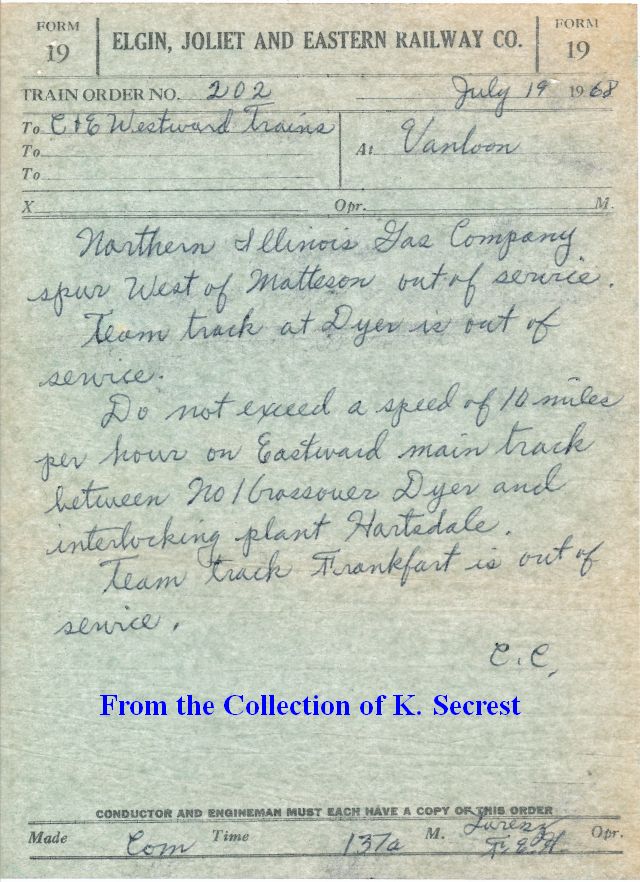 FORM 19 ELGIN, JOLIET AND EASTERN RAILWAY CO. FORM 19
TRAIN ORDER NO. 202 July 19 1968
To C&E Westward Trains
To
To
At Vanloon
X Opr. M.
Northern Illinois Gas Company
spur West of Matteson out of service.
Team track at Dyer is out of
service.
Do not exceed a speed of 10 miles
per hour on Eastward main track
between No 1 Crossover Dyer and
interlocking plant Hartsdale.
Team track Frankfort is out of
service.
C.C.
From the Collection of K. Secrest
CONDUCTOR AND ENGINEMAN MUST EACH HAVE A COPY OF THIS ORDER
Made Com Time 137a M. Opr.